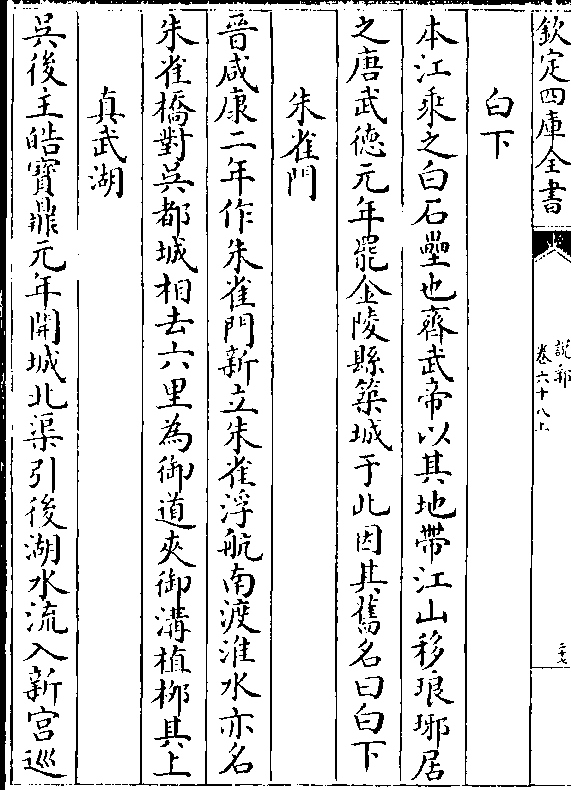 欽定四庫全書
說郛
卷六十八上
二十七
白下
本江乘之白石壘也齊武帝以其地帶江山移琅琊居
之唐武德元年罷金陵縣築城于此因其舊名曰白下
朱雀門
晉咸康二年作朱雀門新立朱雀浮航南渡淮水亦名
朱雀橋對吳都城相去六里為御道夾御溝植栁其上
真武湖
吳後主皓寶鼎元年開城北渠引後湖水流入新宮巡